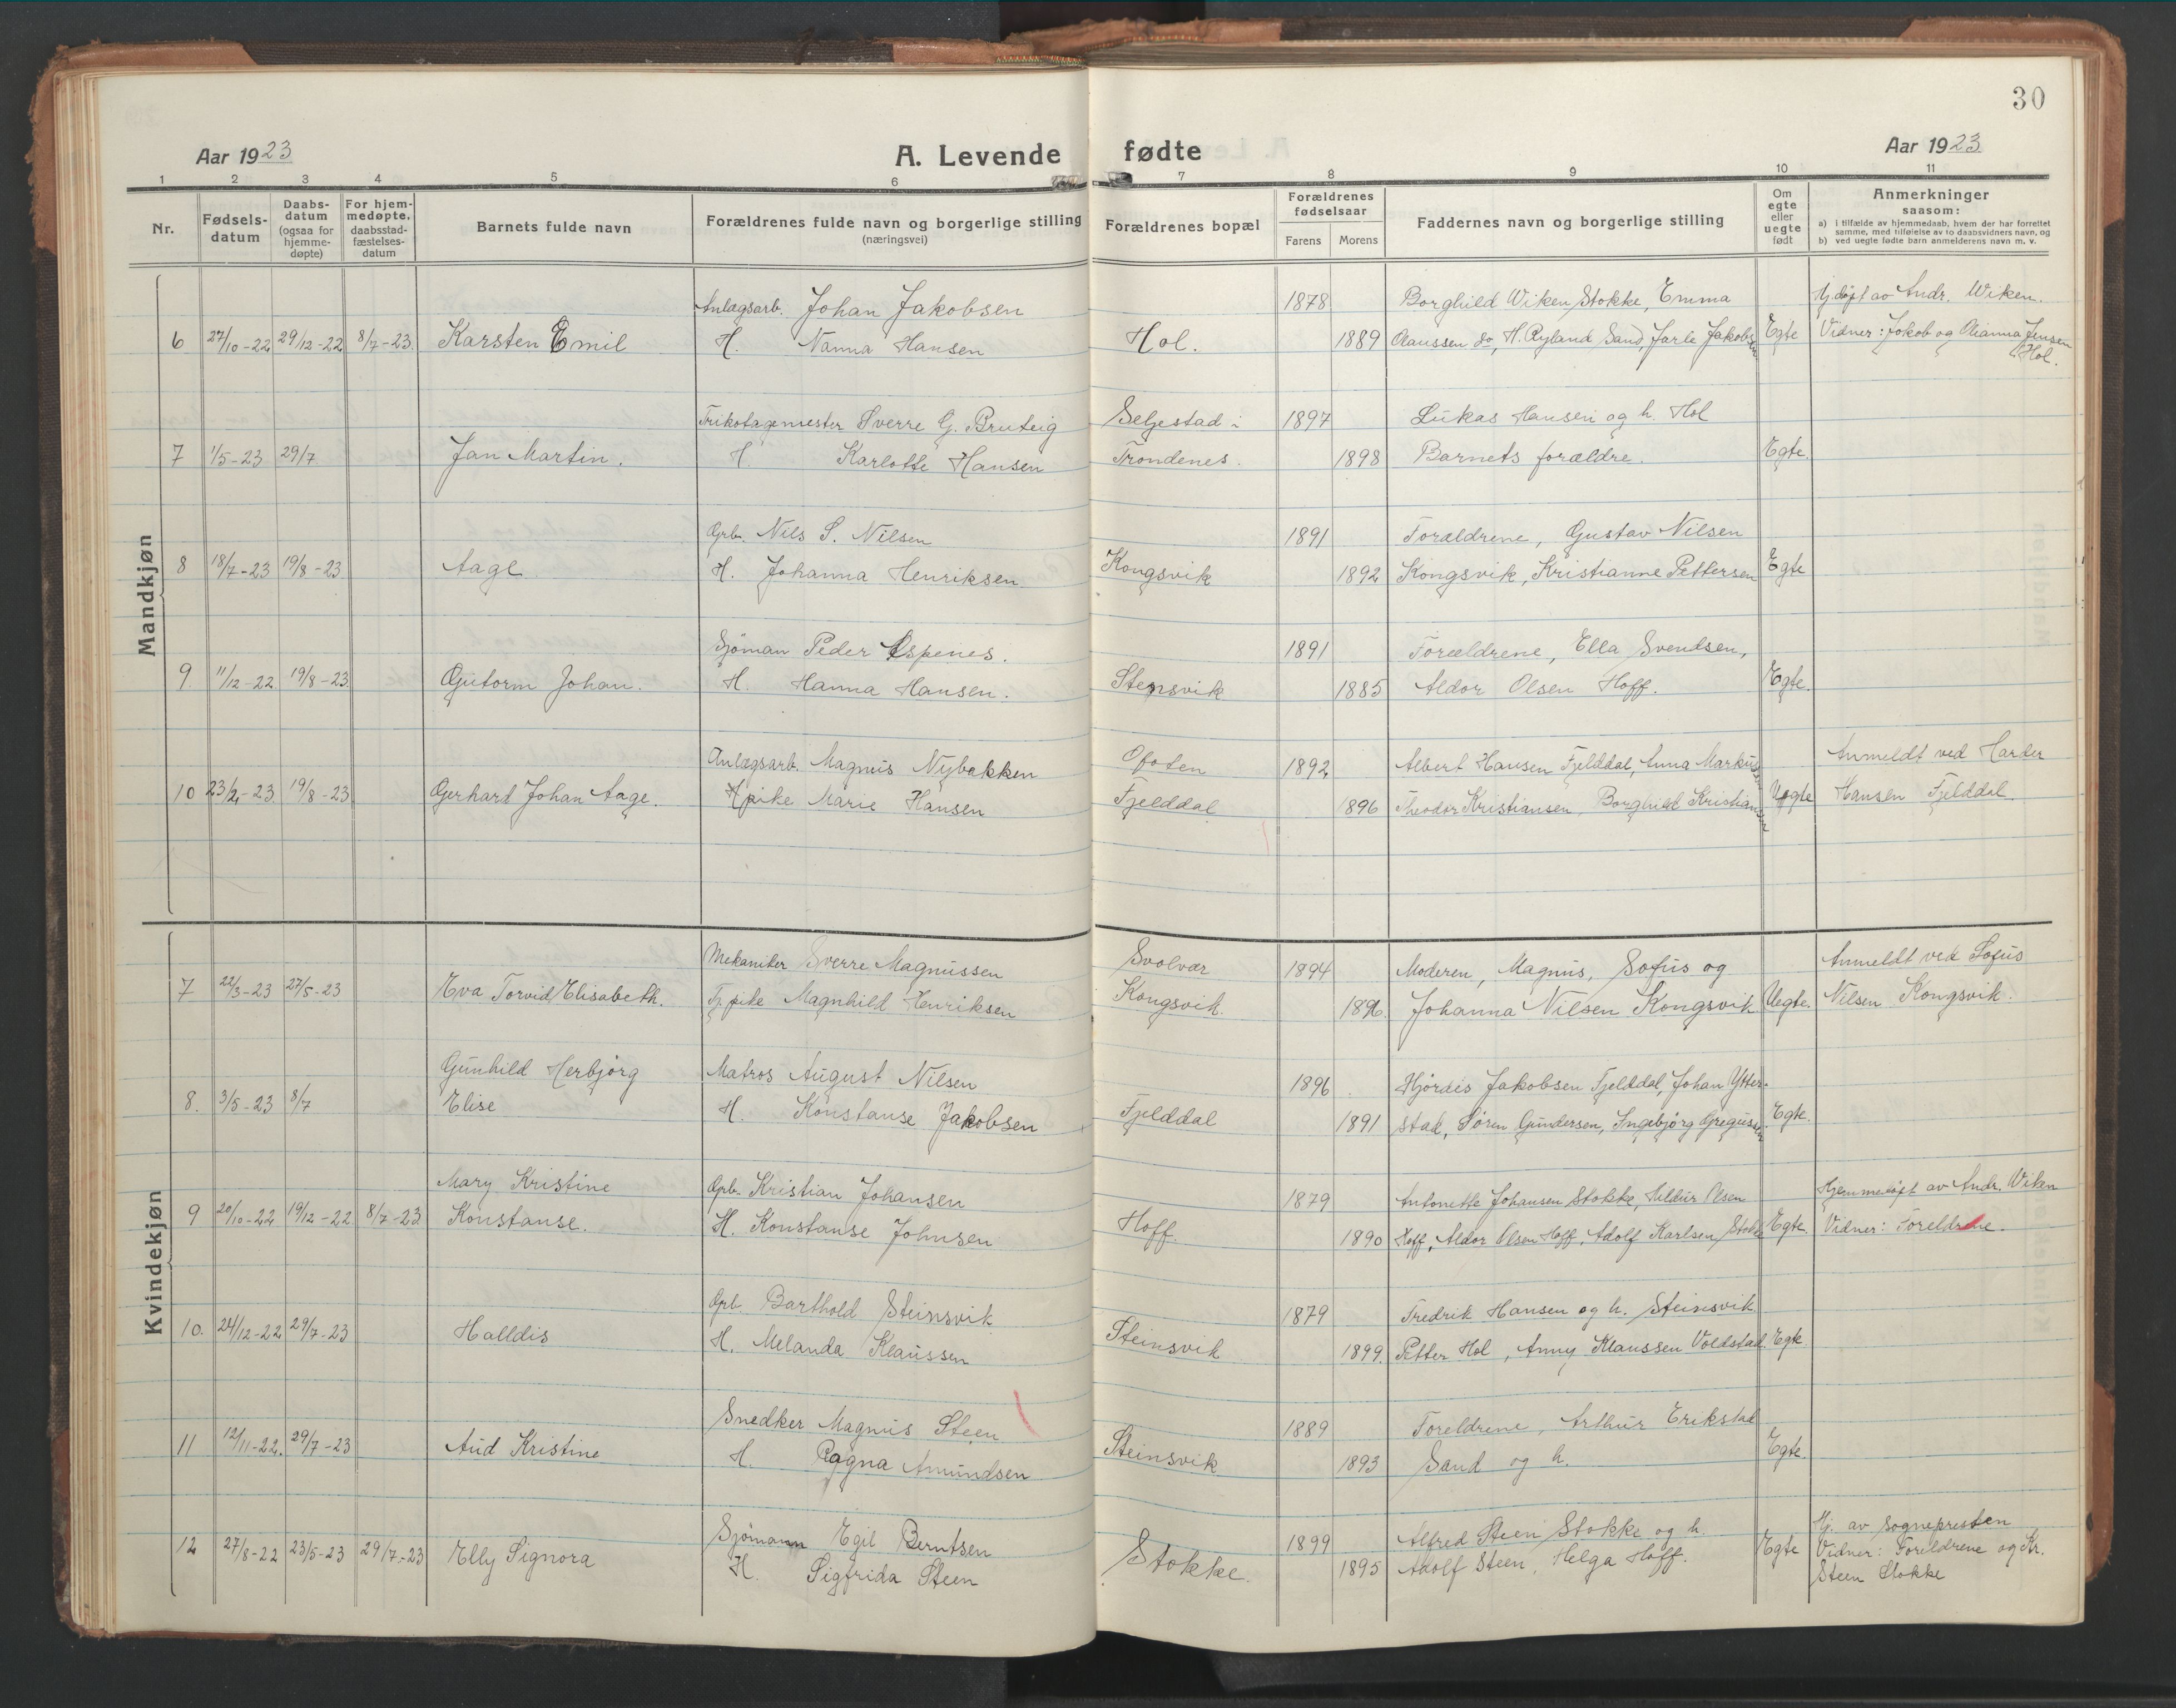 30
Aar 1923
A. Levende fødte
Aar 1923
1 2 3 4 5 6 7 8 9 10 11
Nr.
Fødsels-datum
Daabs-datum (ogsaa for hjemme-døpte)
For hjem-medøpte, daabsstad-fæstelses-datum
Barnets fulde navn
Forældrenes fulde navn og borgerlige stilling (næringsvei)
Forældrenes bopæl
Forældrenes fødselsaar
Farens Morens
Faddernes navn og borgerlige stilling
Om egte eller uegte født
Anmerkninger saasom:
a) i tilfælde av hjemmedaab, hvem der har forrettet samme, med tilføielse av to daabsvidners navn, og
b) ved uegte fødte barn anmelderens navn m. v.
Mandkjøn
Anlægsarb. Johan Jakobsen 1878 Borghild Wiken Stokke, Emma Hj.døpt av Andr. Wiken.
6 27/10-22 29/12-22 8/7-23. Karsten Emil H. Nanna Hansen Hol. 1889 Olaussen do, H. Ryland Sand, Jarle Jakobsen Egte Vidner: Jakob og Olianna Jensen
Hol.
Trikotagemester Sverre G. Bruteig Seljestad i 1897 Lukas Hansen og h. Hol
7 1/5-23 29/7 Jan Martin. H Karlotte Hansen Trondenes. 1898 Barnets forældre. Egte.
Grb. Nils S. Nilsen 1891 Forældrene, Gustav Nilsen
8 18/7-23 19/8-23 Aage H. Johanna Henriksen Kongsvik 1892 Kongsvik, Kristianne Pettersen Egte
Sjöman Peder Espenes. 1891 Forældrene, Ella Svendsen,
9. 11/12-22 19/8-23. Gutorm Johan. H. Hanna Hansen. Stensvik 1885 Aldor Olsen Hoff. Egte.
Anlægsarb. Magnus Nybakken Ofoten 1892 Albert Hansen Fjelddal, Anna Markussen Anmeldt ved Harder
10 23/2-23. 19/8-23 Gerhard Johan Aage. pike Marie Hansen Fjelddal 1896 Theodor Kristiansen, Borghild Kristiansen Uegte Hansen Fjelddal.
Kvindekjøn
Mekaniker Sverre Magnussen Svolvær 1894 Moderen, Magnus, Sofus og Anmeldt ved Sofus
7 22/3-23 27/5-23 Eva Torvid Elisabeth. Tj.pike Magnhild Henriksen Kongsvik. 1896. Johanna Nilsen Kongsvik Uegte. Nilsen Kongsvik.
Gunhild Herbjörg Matros August Nilsen 1896 Hjördis Jakobsen Fjelddal, Johan Ytter-
8. 3/5-23 8/7 Elise H. Konstanse Jakobsen Fjelddal 1891 stad, Sören Gundersen, Ingebjørg Gregussen Egte.
Mary Kristine Grb. Kristian Johansen 1879 Antonette Johansen Stokke, Hildur Olsen Hjemmedöpt av Andr. Wiken
9 20/10-22 19/12-22 8/7-23 Konstanse. H. Konstanse Johnsen Hoff. 1890 Hoff, Aldor Olsen Hoff, Adolf Karlsen Stokke Egte. Vidner: Foreldrene.
Grb. Barthold Steinsvik 1879 Fredrik Hansen og h. Steinsvik
10. 24/12-22 29/7-23 Halldis H. Melanda Klaussen Steinsvik 1899. Petter Hol, Anny Klaussen Voldstad. Egte
Snedker Magnus Steen 1889 Foreldrene, Arthur Erikstad
11 12/11-22. 29/7-23 Aud Kristine H. Ragna Amundsen Steinsvik 1893 Sand og h. Egte.
Sjömann Egil Berntsen 1899 Alfred Steen Stokke og h. Hj. av sognepresten
12 27/8-22 23/5-23 29/7-23 Elly Signora H. Sigfrida Steen Stokke. 1895 Adolf Steen, Helga Hoff. Egte Vidner: Foreldrene og Kr.
Steen Stokke